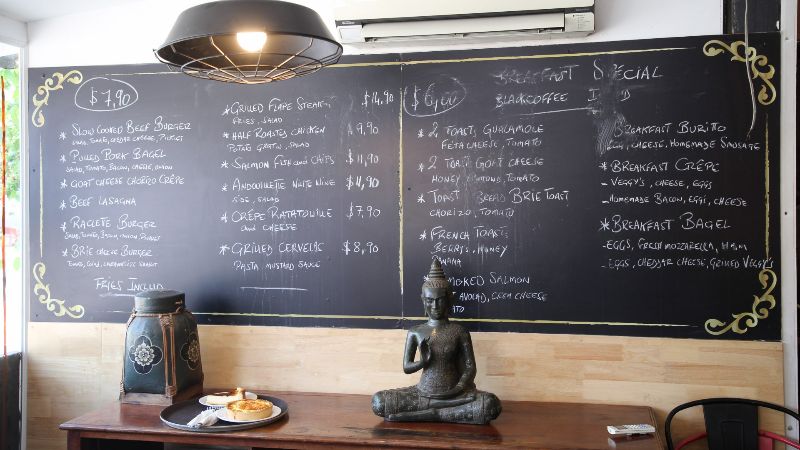 $7,90
* Slow Cooked Beef Burger
* Pulled Pork Bagel
Salad, Tomato, Bacon, Cheese, Onion
* Goat Cheese Chorizo Crêpe
* Beef Lasagna
* Raclete Burger
* Brie Cheese Burger
Fries Includ
* Grilled Flape Steak $14,90
Fries, Salad
* Half Roasted Chicken 9,90
Potato Gratin, Salad
* Salmon Fish and Chips 11,90
* Andouillette White Wine $14,90
Side, Salad
* Crêpe Ratatouille $7,90
and Cheese
* Grilled Cervelas $8,90
Pasta Mustard Sauce
$6,00
* 2 Toast, Guacamole
Feta Cheese, Tomato
* 2 Toast Goat Cheese
Honey, Tomato
* Toast Bread Brie Toast
Chorizo, Tomato
* French Toast
Berrys, Honey
Banana
Smoked Salmon
Avocad, Crem Cheese
Breakfast Special
Black Coffee
Breakfast Burito
Egg, Cheese, Homemade Sausage
* Breakfast Crêpe
- Veggy's, Cheese, Eggs
- Homemade Bacon, Eggs, Cheese
* Breakfast Bagel
- Eggs, Fresh Mozzarella, Ham
- Eggs, Cheddar Cheese, Grilled Veggy's